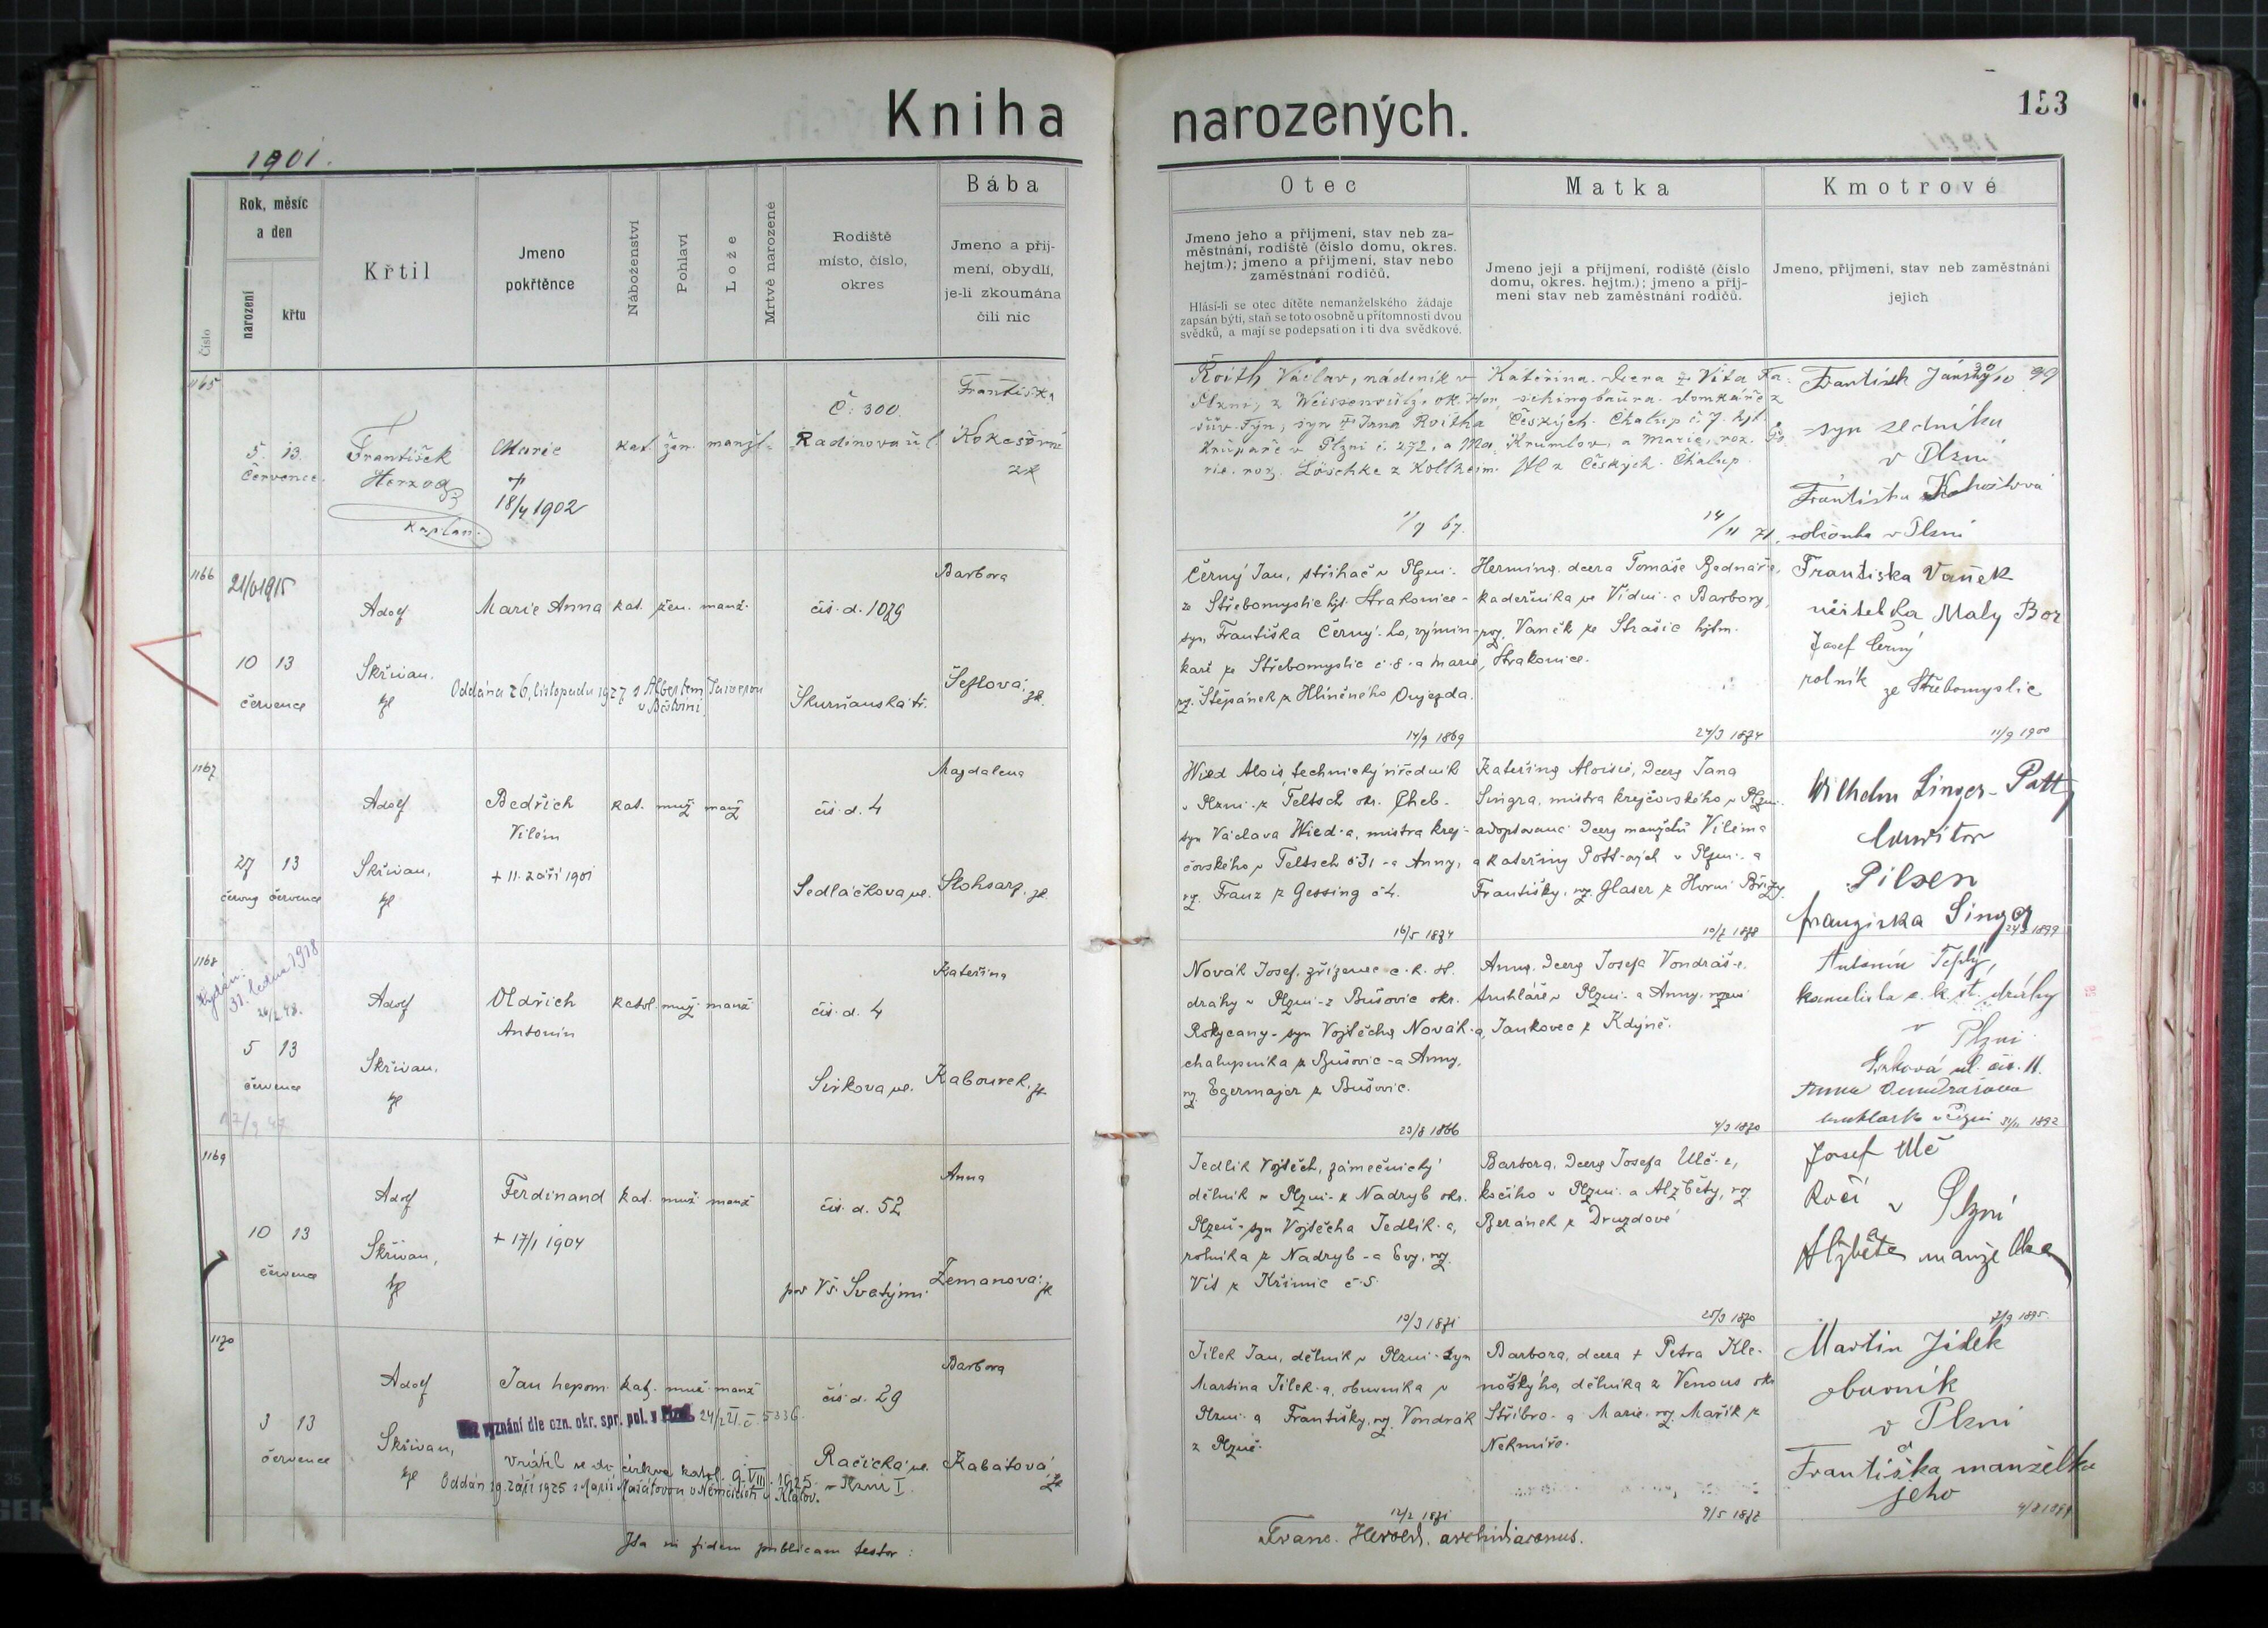 Kniha
narozených.
153
1901.
Číslo
Rok, měsíc
a den
narození
křtu
Křtil
Jmeno
pokřtěnce
Náboženství
Pohlaví
Lože
Mrtvě narozené
Rodiště
místo, číslo,
okres
Bába
Jmeno a příj-
mení, obydlí,
je-li zkoumána
čili nic
Otec
Jmeno jeho a příjmení, stav neb za-
městnání, rodiště (číslo domu, okres.
hejtm.); jmeno a příjmení, stav nebo
zaměstnání rodičů.
Hlásí-li se otec dítěte nemanželského žádaje
zapsán býti, staň se toto osobně u přítomnosti dvou
svědků, a mají se podepsati on i ti dva svědkové.
Matka
Jmeno její a příjmení, rodiště (číslo
domu, okres. hejtm.); jmeno a příj-
mení stav neb zaměstnání rodičů.
Kmotrové
Jmeno, příjmení, stav neb zaměstnání
jejich
1165
5. 13.
července.
František
Herzog
kaplan.
Marie
+
18/4 1902
kat. žen. manž.
Č: 300.
Radinova ul
Františka
Kokešová
zk
Roith Václav, nádeník v
Plzni, z
syn + Jana Roitha
v Plzni č. 272, a Ma-
rie, roz. Löschke z Kollheim
1/9 67.
Kateřina. dcera + Víta
domkáře z
Českých Chalup č. 7. hjt
Krumlov, a Marie, roz.
z Českých Chalup.
14/11 71.
František Jánský 30/10 99
syn
v Plzni
Františka
v Plzni
1166
21/6 1915
10 13
července
Adolf
Skřivan,
kpl
Marie Anna
kat. žen. manž.
Oddána 26. listopadu 1927 s Albertem
čís. d. 1079
Škurňanská tř.
Barbora
Šeflová, zk.
Černý Jan, střihač v Plzni-
ze Střebomyslic hjt. Strakonice-
syn Františka Černý-ho, výmin-
kaře ze Střebomyslic č. 8. a Marie,
roz. Štěpánek z Hliněného Oujezda.
14/9 1869
Hermina. dcera Tomáše Bednáře,
kadeřníka ve Vídni- a Barbory,
roz. Vaněk ze Strašic hjtm.
Strakonice.
24/3 1874
Františka Vaněk
učitelka Malý Bor
Josef Černý
rolník ze Střebomyslic
11/9 1900
1167
27 13
června července
Adolf
Skřivan,
kpl
Bedřich
Vilém
+ 11. září 1901
kat. muž. manž
čís. d. 4
Sedláčkova ul.
Magdalena
Stohsarz, zk
Wied Alois, technický úředník
v Plzni- z Teltsch okr. Cheb-
syn Václava Wied-a, mistra krej-
čovského v Teltsch č 31 - a Anny,
roz. Franz z Gessing č 4.
16/5 1874
Kateřina Aloisie, dcera Jana
Singra, mistra krejčovského v Plzni-
adoptovaná dcera manželů Viléma
a Kateřiny Pott-ových v Plzni - a
Františky, roz. Glaser z Horní Břízy.
10/7 1878
Wilhelm Singer-Pott
Pilsen
Franziska Singer
1899
1168
31. ledna 1918
5 13
července
17/9 47
Adolf
Skřivan,
kpl
Oldřich
Antonín
katol. muž. manž
čís. d. 4
Sirkova ul.
Kateřina
Kabourek, zk
Novák Josef, zřízenec c. k. st.
dráhy v Plzni- z Bušovic okr.
Rokycany- syn Vojtěcha Novák-a,
chalupníka z Bušovic - a Anny,
roz. Egermajer z Bušovic.
23/8 1866
Anna, dcera Josefa Vondráš-e,
truhláře v Plzni- a Anny, rozené
Jankovec z Kdýně.
4/3 1870
Antonín Teplý,
kancelista c. k. st. dráhy
v Plzni
ul. čís. 11.
Anna
v Plzni 1892
1169
10 13
července
Adolf
Skřivan,
kpl
Ferdinand
+ 17/1 1904
kat. muž. manž
čís. d. 52
pod Vš. Svatými
Anna
Zemanová, zk
Jedlík Vojtěch, zámečnický
dělník v Plzni- z Nadryb okr.
Plzeň- syn Vojtěcha Jedlík-a,
rolníka z Nadryb - a Evy, roz.
Vít z Křimic č. 5.
10/3 1871
Barbora, dcera Josefa Ulč-e,
kočího v Plzni- a Alžběty, roz
Beránek z Druzdové
25/3 1870
Josef Ulč
kočí v Plzni
Alžběta manželka
1895.
1170
3 13
července
Adolf
Skřivan,
kpl
Jan nepom.
kat. muž. manž
Bez vyznání dle ozn. okr. spr. pol. v Plzni 24/2 21. č. 5336.
Vrátil se do církve katol. 9. VIII. 1925.
Oddán 19. září 1925 s Marií
čís. d. 29
Račická ul.
- Plzni I
Barbora
Kabátová, zk
Jílek Jan, dělník v Plzni- syn
Martina Jílek-a, obuvníka v
Plzni- a Františky, roz. Vondrák
z Plzně.
12/2 1871
Barbora, dcera + Petra Kle-
dělníka z Venous okr
Stříbro- a Marie, roz. Mařík z
Nekmíře.
9/5 1872
Martin Jílek
obuvník
v Plzni
Františka manželka
jeho
Ita in fidem publicam testor:
Franc. Herold, archidiaconus.